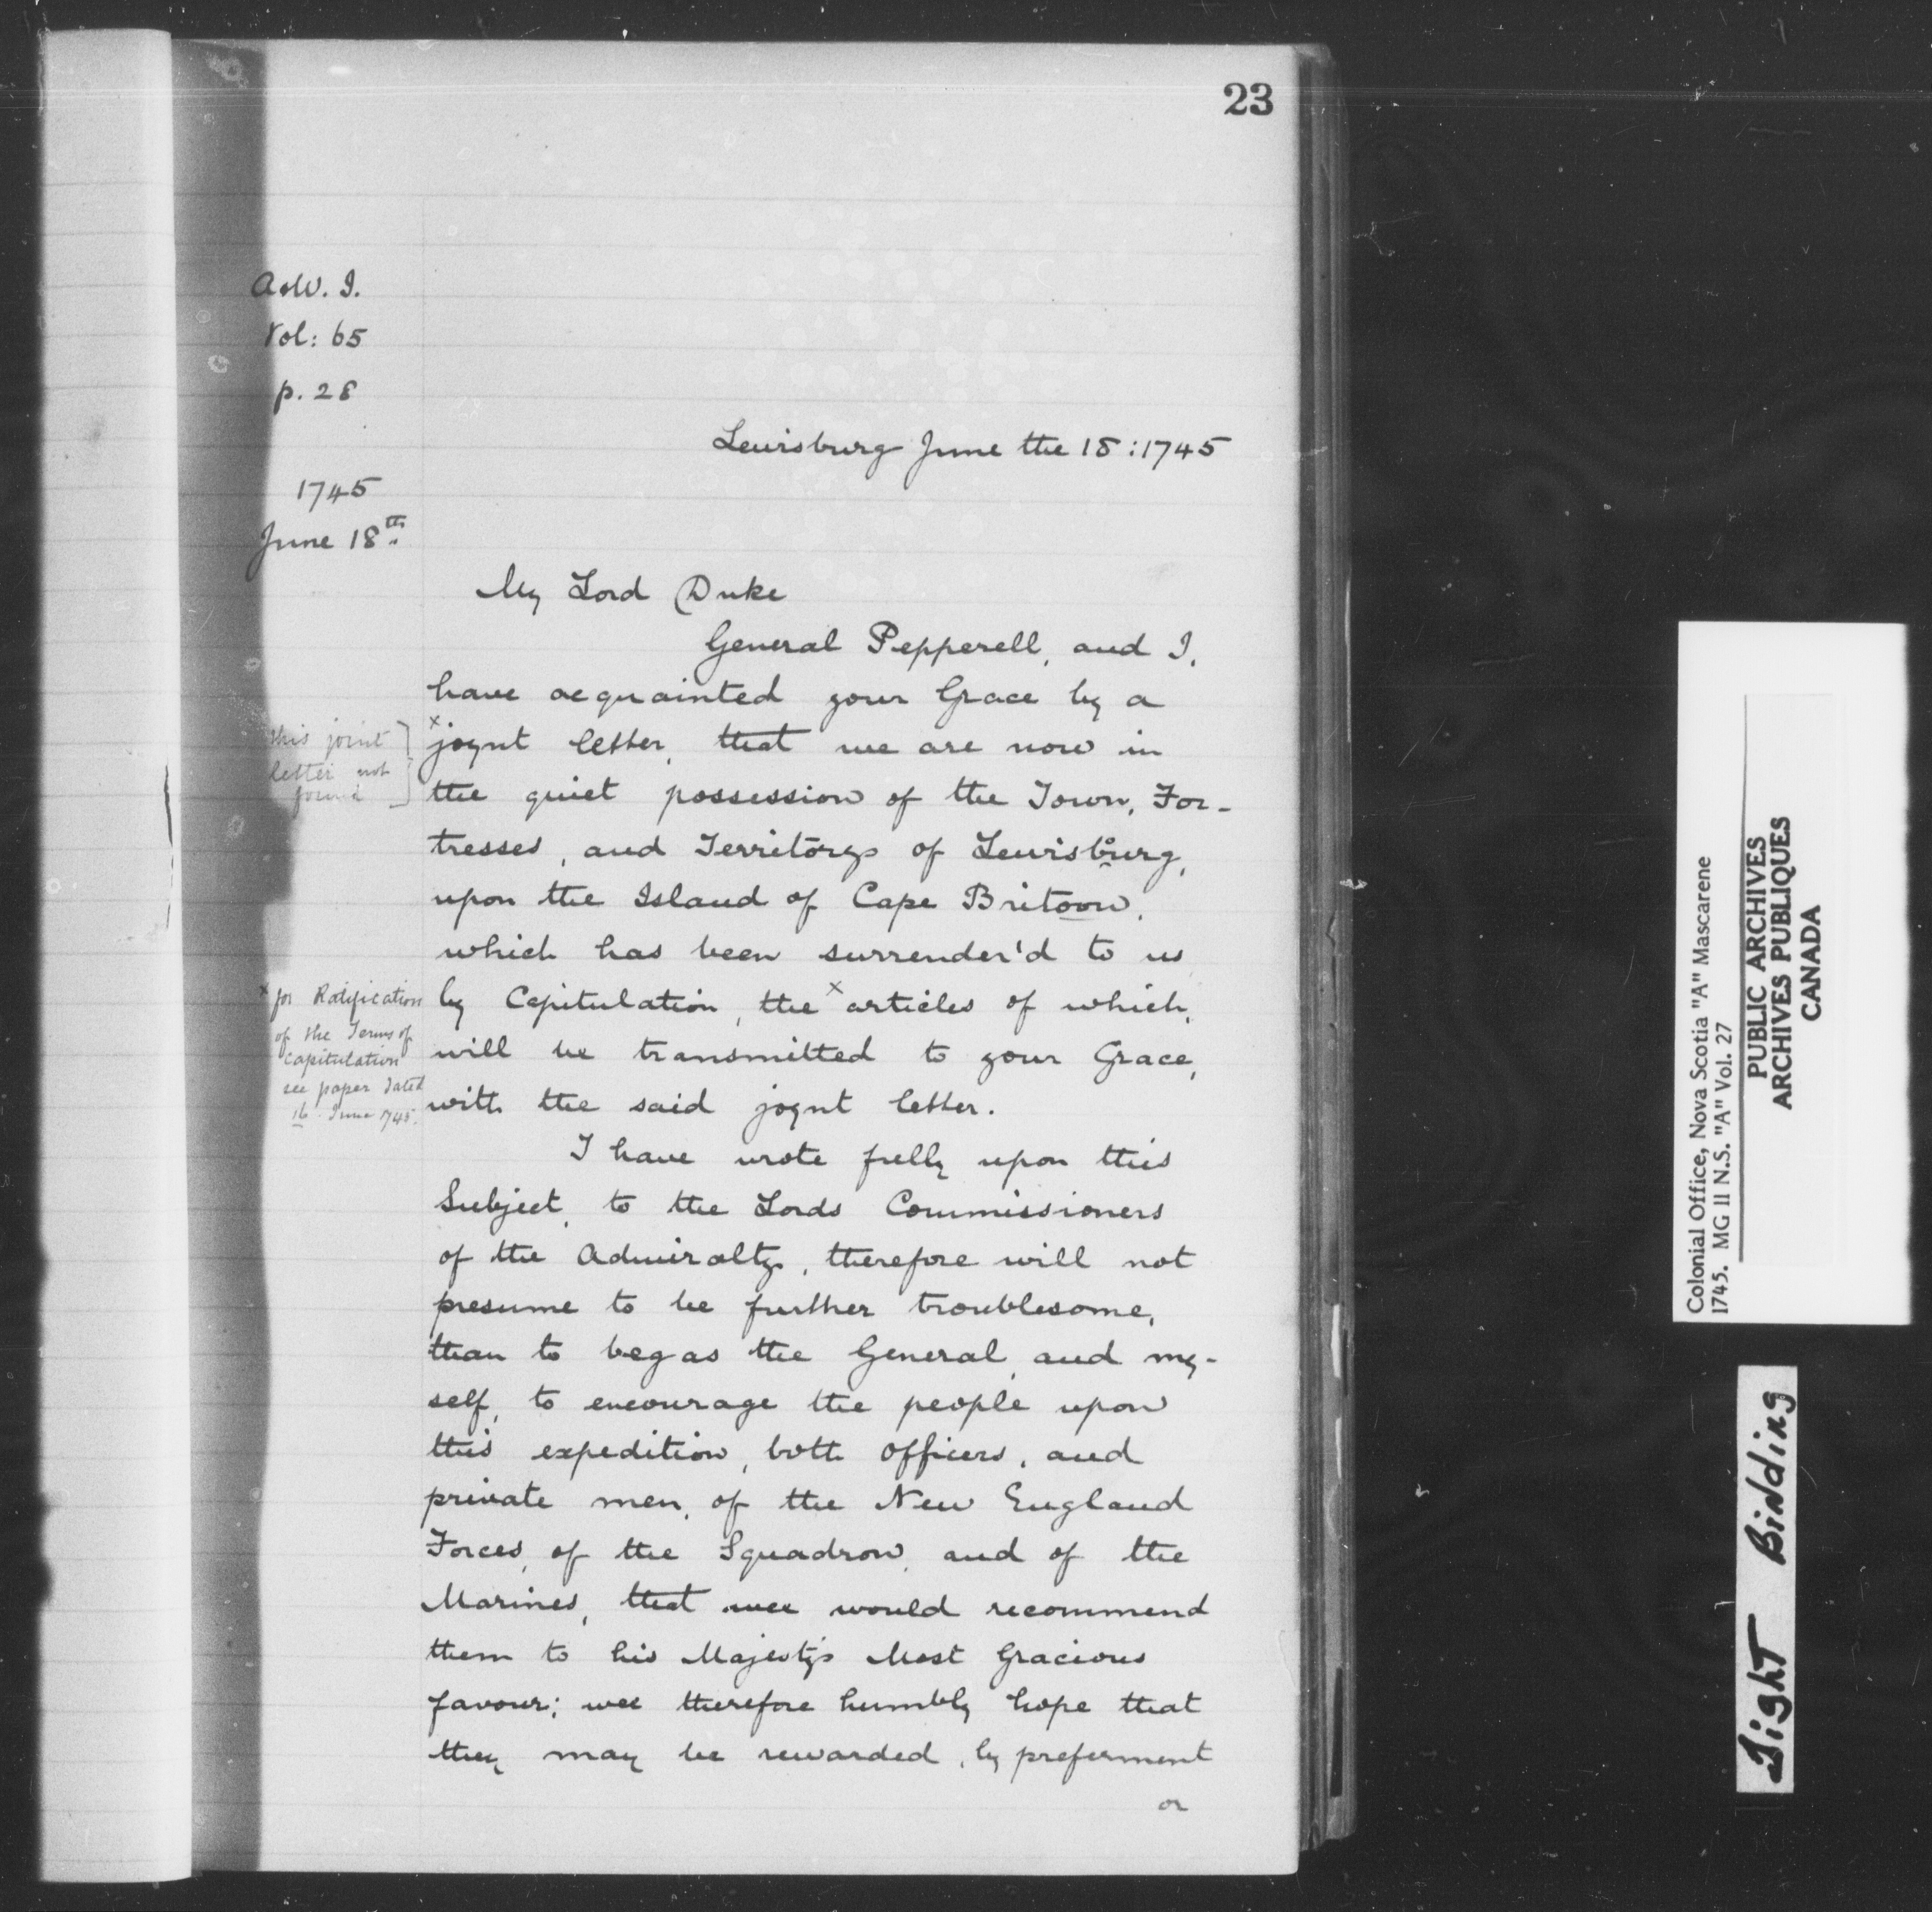 23
A&W. I.
Vol: 65
p. 28
Lewisburg June the 18:1745
1745
June 18th.
My Lord Duke
General Pepperell, and I,
have acquainted your Grace by a
x joynt letter, that we are now in
this joint
letter not
found
the quiet possession of the Town, For-
tresses, and Territorys of Lewisburg,
upon the Island of Cape Britoon,
which has been surrender'd to us
by Capitulation, the x articles of which,
will be transmitted to your Grace,
with the said joynt letter.
x for Ratification
of the Terms of
Capitulation
see paper dated
16 June 1745.
I have wrote fully upon this
Subject, to the Lords Commissioners
of the Admiralty, therefore will not
presume to be further troublesome,
than to beg as the General, and my-
self, to encourage the people upon
this expedition, both officers, and
private men, of the New England
Forces, of the Squadron, and of the
Marines, that wee would recommend
them to his Majestys Most Gracious
favour; wee therefore humbly hope that
they may be rewarded, by preferment
or
Colonial Office, Nova Scotia "A" Mascarene
1745. MG II N.S. "A" Vol. 27
PUBLIC ARCHIVES
ARCHIVES PUBLIQUES
CANADA
Tight Binding